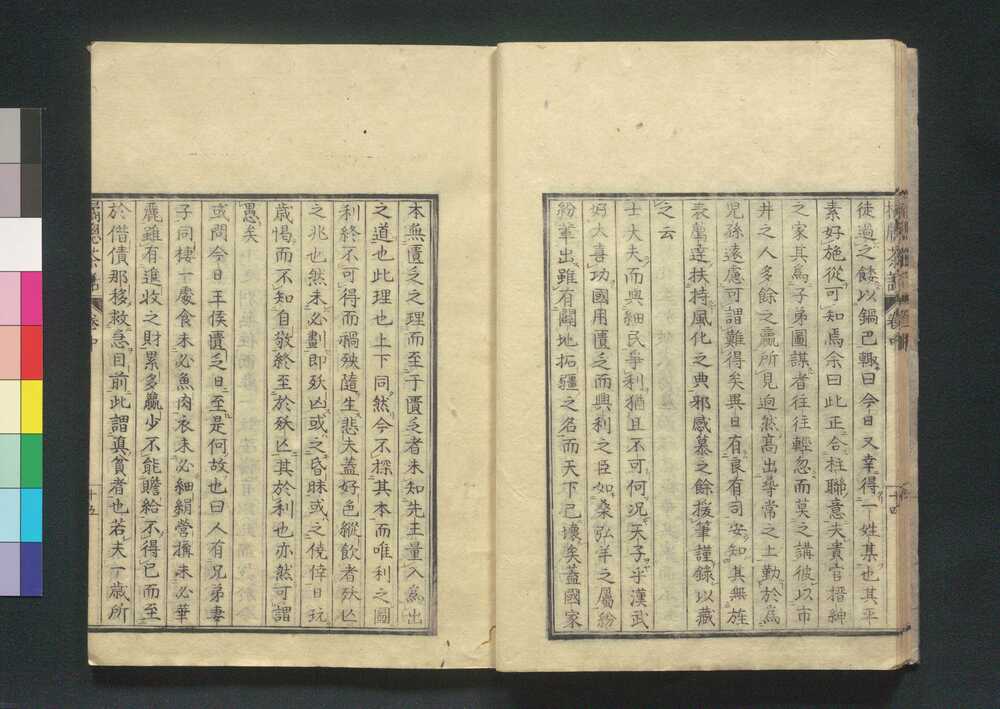 徒過之餧以鍋巴輙曰今日又幸得一姓某也其平
素好施從可知焉余曰此正合柱聯意夫貴官搢紳
之家其為子弟圖謀者往往輕忽而莫之講彼以市
井之人多餘之贏所見迥然高出尋常之上勤於為
児孫遠慮可謂難得矣異日有良有司安知其無旌
表厲達扶持風化之典邪感慕之餘援筆謹錄以藏
之云
士大夫而與細民爭利猶且不可何況天子乎漢武
好大喜功國用匱乏而興利之臣如桑弘羊之屬紛
紛輩出雖有闢地拓疆之名而天下已壞矣蓋國家
卷中
十四
本無匱乏之理而至于匱乏者未知先王量入為出
之道也此理也上下同然今不探其本而唯利之圖
利終不可得而禍殃隨生悲夫蓋好色縱飲者殀亾
之兆也然未必劃即殀凶或之昏昧或之僥倖日玩
歲愒而不知自敬終至於殀亾其於利也亦然可謂
愚矣
或問今日王侯匱乏日至是何故也曰人有兄弟妻
子同棲十處食未必魚肉衣未必細絹營搆未必華
麗雖有進收之財累多贏少不能贍給不得已而至
於借債那移救急目前此謂真貧者也若夫一歲所
卷中
十五